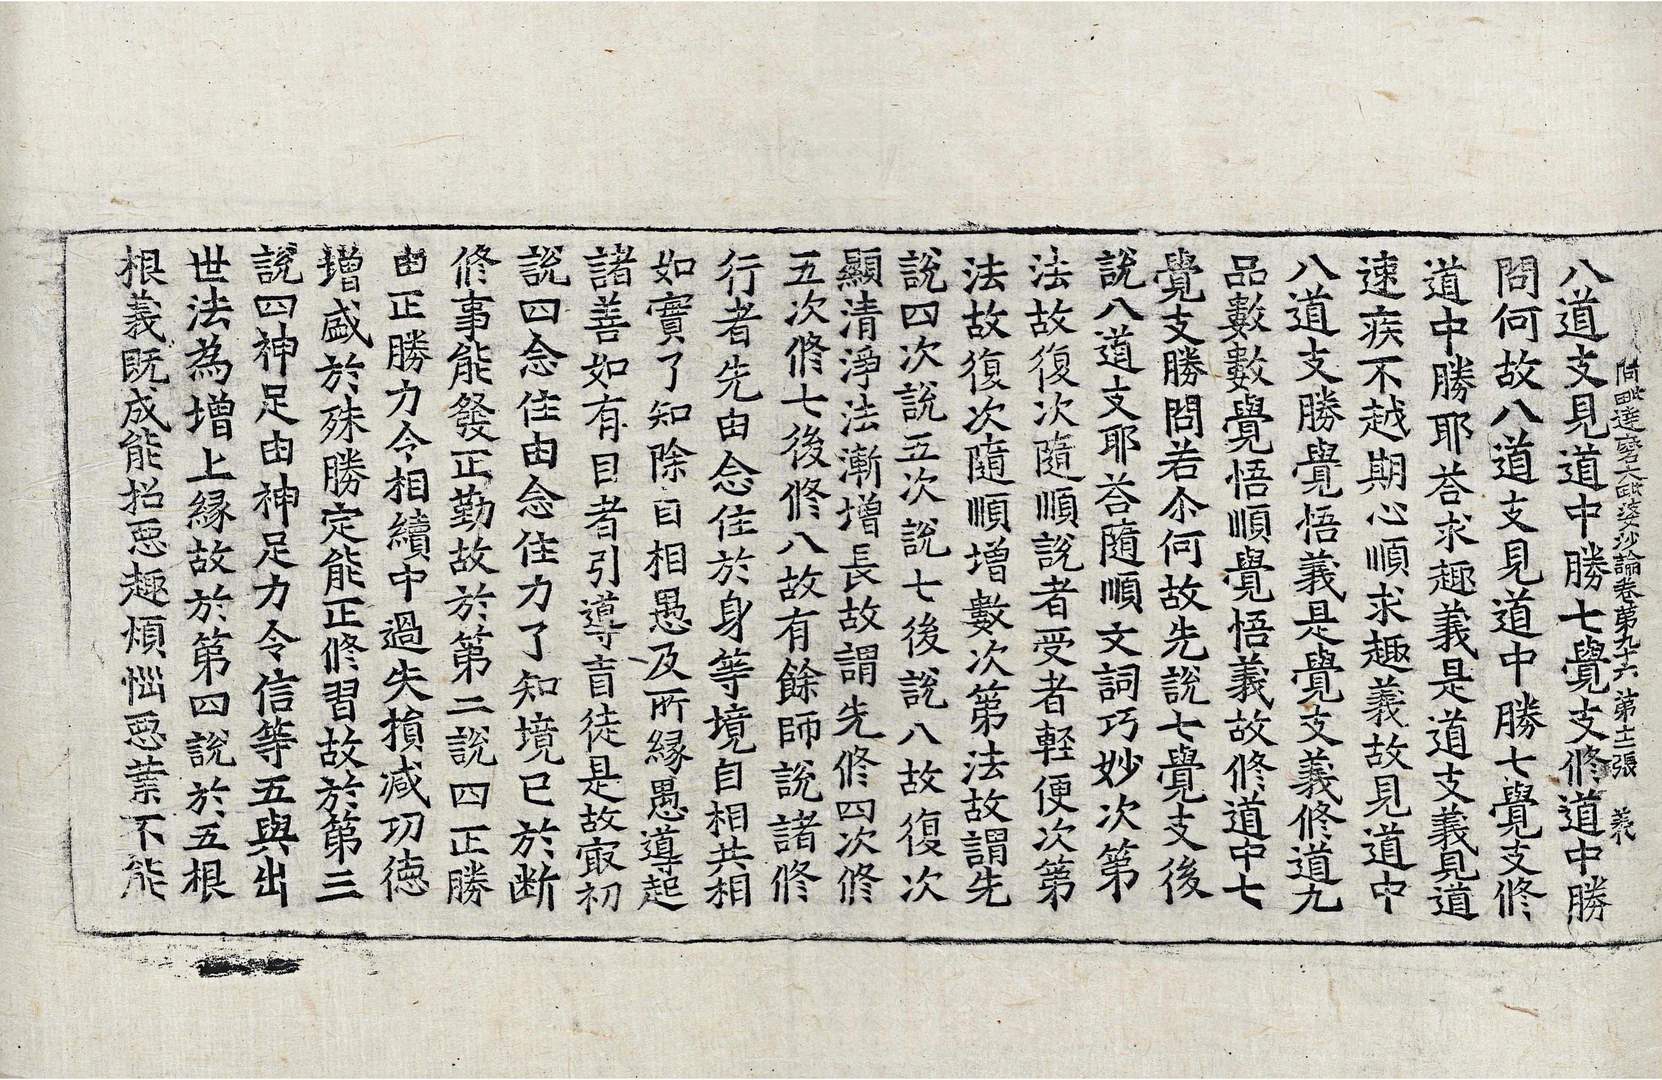 阿毗達磨大毗婆沙論卷第九十六 第十二張 義
八道支見道中勝七覺支修道中勝
問何故八道支見道中勝七覺支修
道中勝耶荅求趣義是道支義見道
速疾不越期心順求趣義故見道中
八道支勝覺悟義是覺支義修道九
品數數覺悟順覺悟義故修道中七
覺支勝問若尒何故先說七覺支後
說八道支耶荅隨順文詞巧妙次第
法故復次隨順說者受者輕便次第
法故復次隨順增數次第法故謂先
說四次說五次說七後說八故復次
顯清淨法漸增長故謂先修四次修
五次修七後修八故有餘師說諸修
行者先由念住於身等境自相共相
如實了知除自相愚及所緣愚導起
諸善如有目者引導盲徒是故㝡初
說四念住由念住力了知境已於断
修事能發正勤故於第二說四正勝
由正勝力令相續中過失損減功德
增盛於殊勝定能正修習故於第三
說四神足由神足力令信等五與出
世法為增上緣故於第四說於五根
根義旣成能招惡趣煩惱惡業不能